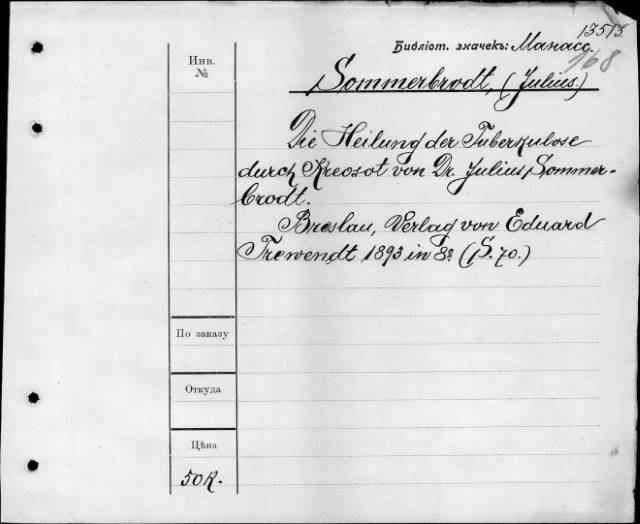 13515
Библіот. значекъ: Манасс.
168
Инв.
№
Sommerbrodt, (Julius.)
Die Heilung der Tuberkulose
durch Kreosot von Dr. Julius Sommer-
brodt.
Breslau, Verlag von Eduard
Trewendt 1893 in 8º (S. 70.)
По заказу
Откуда
Цѣна
50к.